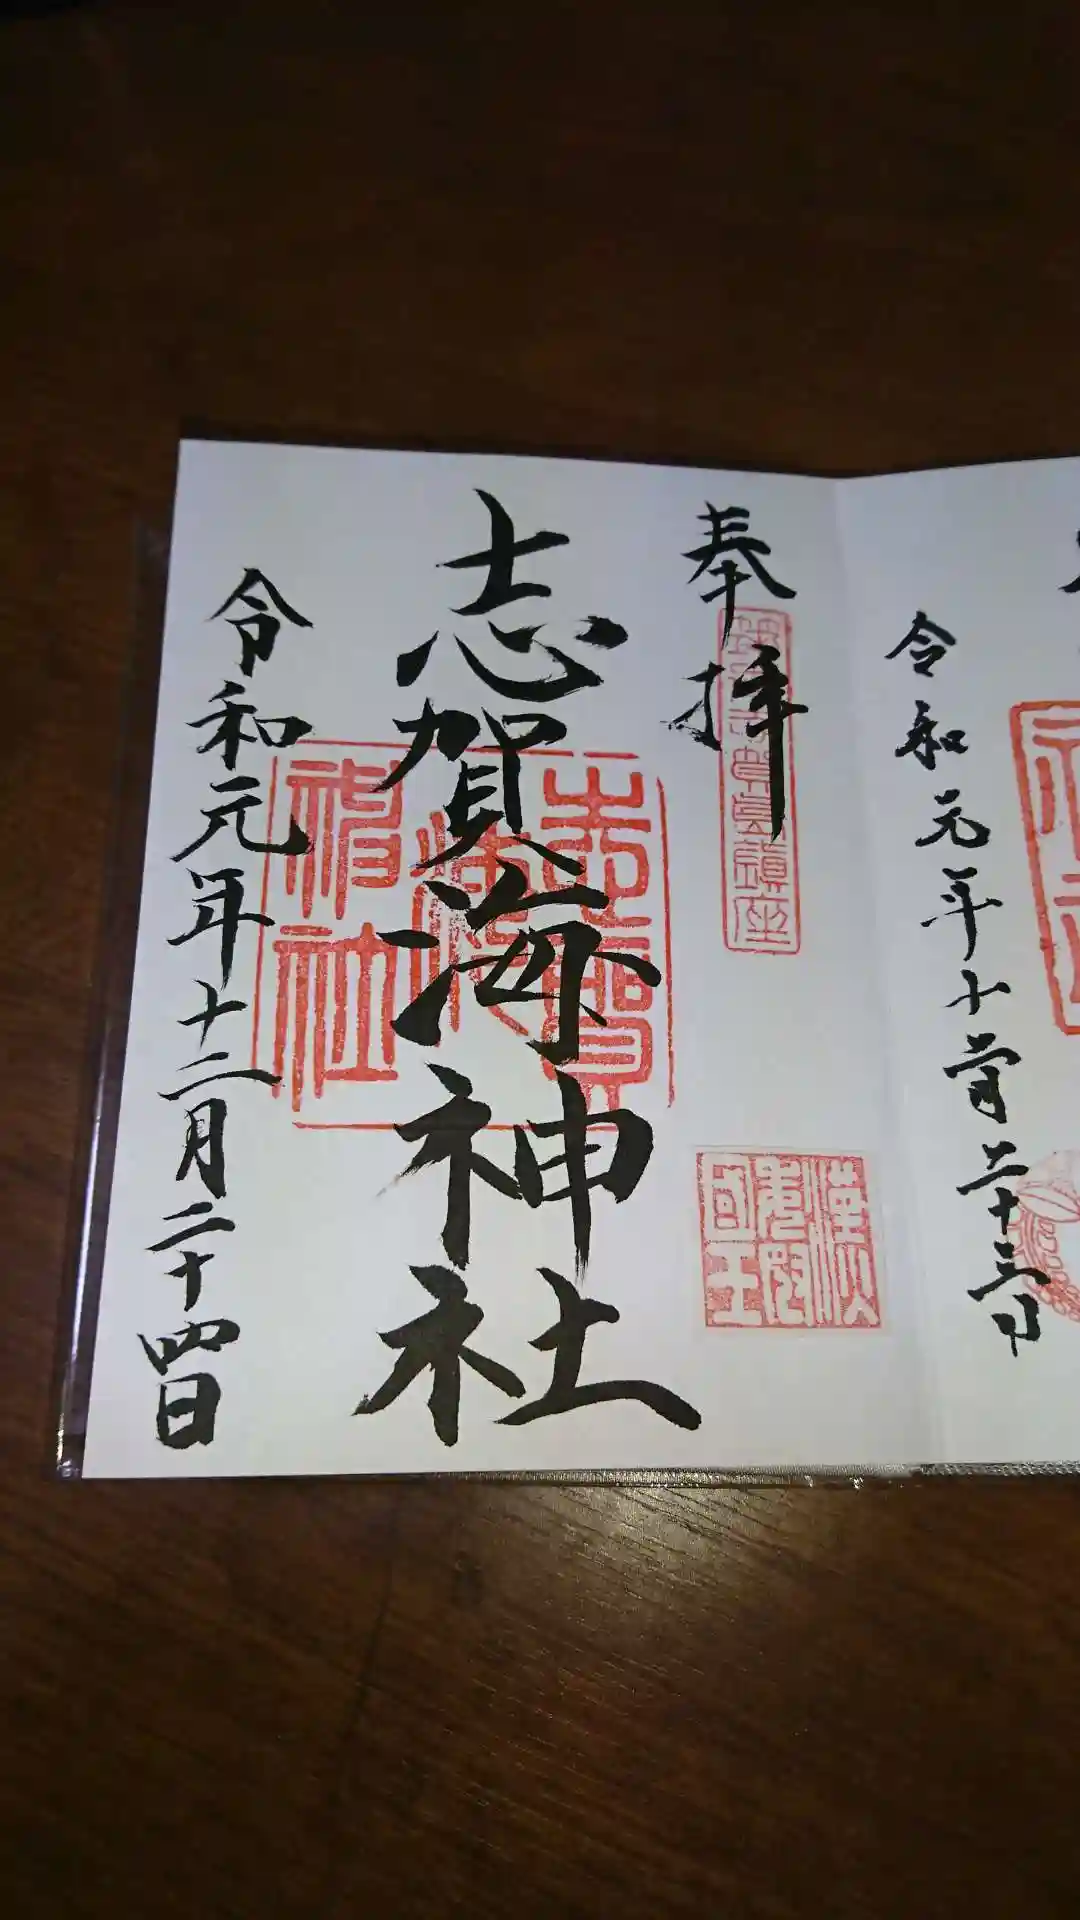 令和元年十二月二十三日
奉拝
志賀海神社
漢委奴國王
志賀海神社
令和元年十二月二十四日